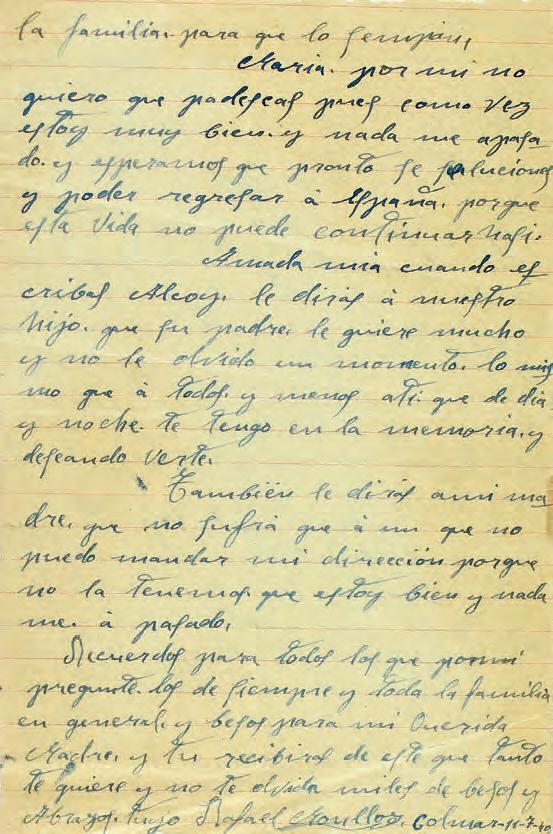 la familia. para que lo sempian,
Maria. por mi no
quiero que padescas pues como vez
estoy muy bien. y nada me apasa
do. y esperamos que pronto se soluciones
y poder regresar à España. porque
esta vida no puede continuar hasi.
Amada mia cuando es
cribas Alcoy. le diras à nuestro
hijo. que su padre. le quiere mucho
y no le olvido un momento. lo mis
mo que à todos. y menos ati que de dia
y noche. te tengo en la memoria. y
deseando verte.
También le diras ami ma
dre. que no sufra que à un que no
puedo mandar mi dirección porque
no la tenemos. que estoy bien y nada
me. à pasado,
Recuerdos para todos los que pormi
pregunte. los de siempre y toda la familia
en general. y besos para mi Querida
Madre. y tu recibiras de este que tanto
te quiere y no te olvida miles de besos y
Abrazos. tuyo Rafael Colmar-11-7-